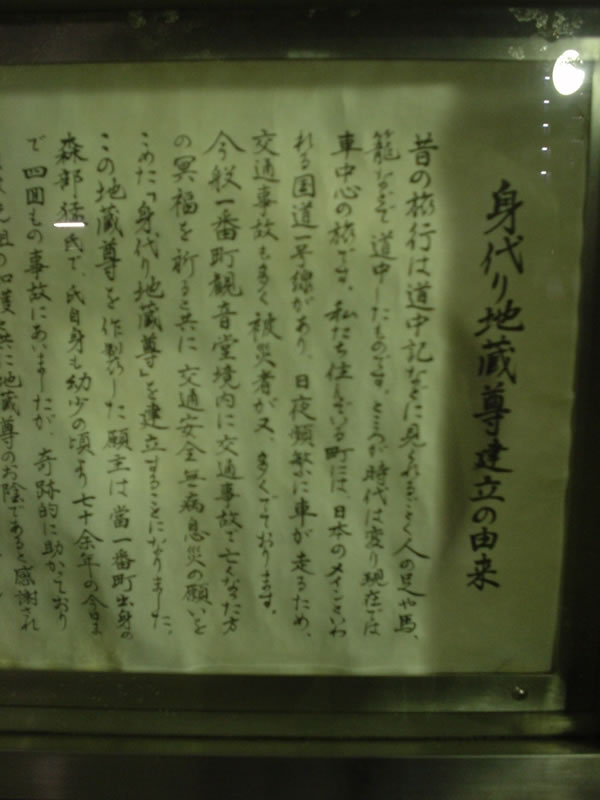 身代り地蔵尊建立の由来
昔の旅行は道中記などに見られるごとく人の足や馬、
籠などで道中したものです。ところが時代は変り現在では
車中心の旅です。私たち住んでいる町には日本のメインといわ
れる国道一号線があり、日夜頻繁に車が走るため、
交通事故も多く被災者が又、多くでております。
今般一番町観音堂境内に交通事故で亡くなった方
の冥福を祈ると共に交通安全無病息災の願いを
こめた「身代り地蔵尊」を建立することになりました。
この地蔵尊を作製した願主は當一番町出身の
森部猛氏で、氏自身も幼少の頃より七十余年の今日ま
で四回もの事故にあいましたが、奇跡的に助かっており
地蔵尊のお陰であると感謝され